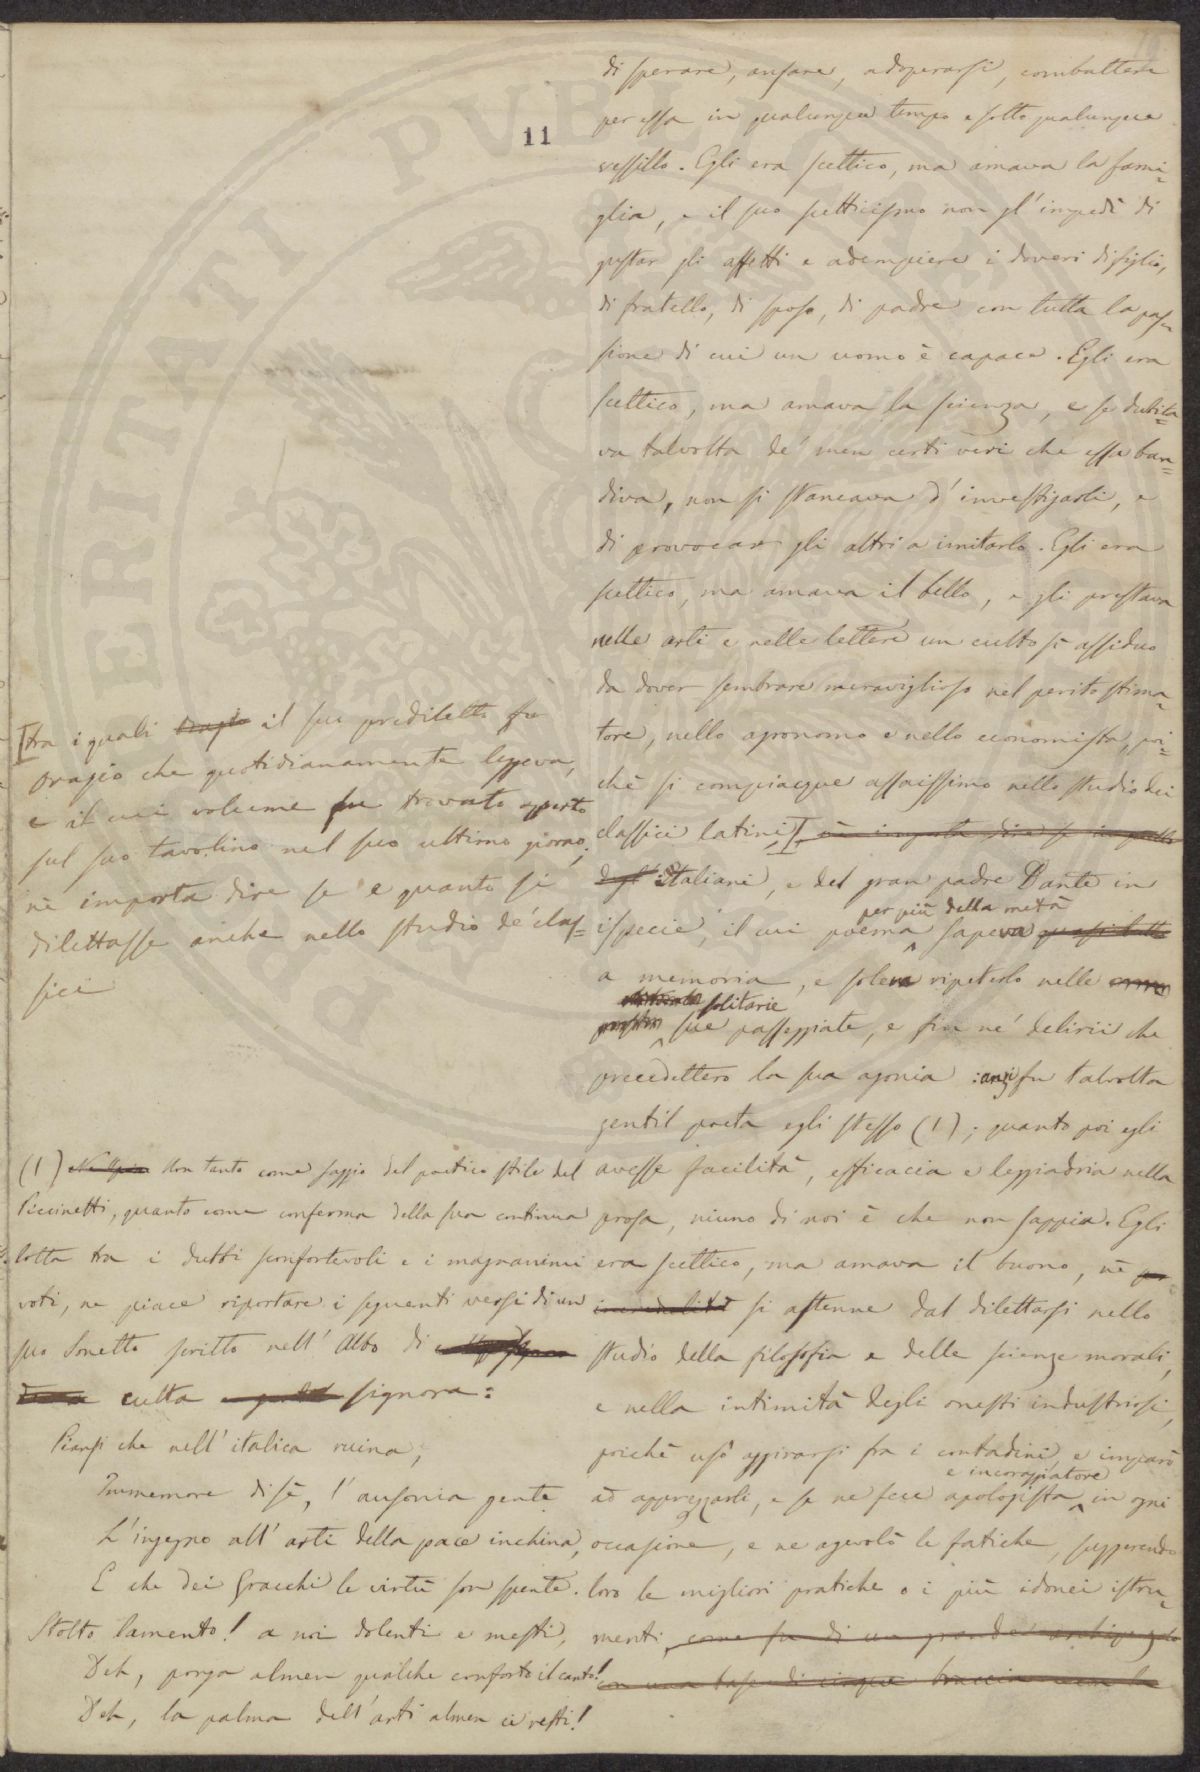 11
di sperare, ansare, adoperarsi, combattere
per essa in qualunque tempo e sotto qualunque
vessillo. Egli era scettico, ma amava la fami=
glia, e il suo scetticismo non gl'impedì di
gustar gli affetti e adempiere i doveri di figlio,
di fratello, di sposo, di padre con tutta la pas=
sione di cui un uomo è capace. Egli era
scettico, ma amava la scienza, e se dubita=
va talvolta de' men certi veri che essa ban=
diva, non si stancava d'investigarli, e
di provocar gli altri a imitarlo. Egli era
scettico, ma amava il bello, e gli prestava
nelle arti e nelle lettere un culto sì assiduo
da dover sembrare meraviglioso nel perito stima=
tore, nello agronomo e nello economista, poi=
chè si compiacque assaissimo nello studio dei
classici latini, I nè importa dire se in quello
degl' Italiani, e del gran padre Dante in
ispecie, il cui poema per più della metà sapeva quasi tutto
a memoria, e soleva ripeterlo nelle
solitarie
sue passeggiate, e fin ne' delirii che
precedettero la sua agonia : anzi fu talvolta
gentil poeta egli stesso (1); quanto poi egli
avesse facilità, efficacia e leggiadria nella
prosa, niuno di noi è che non sappia. Egli
era scettico, ma amava il buono, nè per
incredulità si astenne dal dilettarsi nello
studio della filosofia e delle scienze morali,
e nella intimità degli onesti industriosi,
poichè usò aggirarsi fra i contadini, e imparò
ad apprezzarli, e se ne fece apologista e incoraggiatore in ogni
occasione, e ne agevolò le fatiche, suggerendo
loro le migliori pratiche o i più idonei istru=
menti, come fu di un grande
con una base di cinque braccia
I tra i quali il suo prediletto fu
Orazio che quotidianamente leggeva,
e il cui volume fu trovato aperto
sul suo tavolino nel suo ultimo giorno;
nè importa dire se e quanto si
dilettasse anche nello studio de' clas=
sici
(1) Non tanto come saggio del poetico stile del
Piccinetti, quanto come conferma della sua continua
lotta tra i dubbi sconfortevoli e i magnanimi
voti, ne piace riportare i seguenti versi di un
suo Sonetto scritto nell' Albo di
culta signora:
Piansi che nell' italica ruina,
Immemore di sè, l' ausonia gente
L' ingegno all' arti della pace inchina,
E che dei Gracchi le virtù son spente.
Stolto lamento! a noi dolenti e mesti,
Deh, porga almen qualche conforto il canto!
Deh, la palma dell' arti almen ci resti!
PVBLICAE
PROSPERITATI